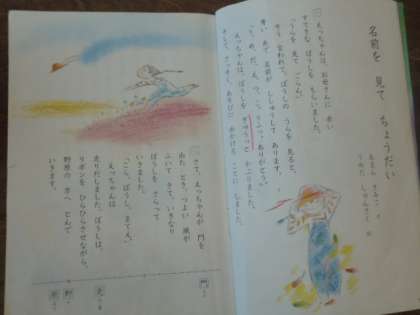 名前を 見て ちょうだい
あまん きみこ 作
えっちゃんは、お母さんに 赤い
すてきな ぼうしを もらいました。
「うらを 見て ごらん。」
そう 言われて、ぼうしの うらを 見ると、
青い 糸で 名前が ししゅうして あります。
「う、め、だ、え、つ、こ。うふっ。ありがとう。」
えっちゃんは、ぼうしを ぎゅうっと かぶりました。
そして、さっそく、あそびに 出かける ことに しました。
さて、えっちゃんが 門を
出た とき、つよい 風が
ふいて きて、いきなり
ぼうしを さらって
いきました。
「こら、ぼうし、まてえ。」
えっちゃんは
走りだしました。ぼうしは、
リボンを ひらひらさせながら、
野原の 方へ とんで
いきます。
門
走
野
原